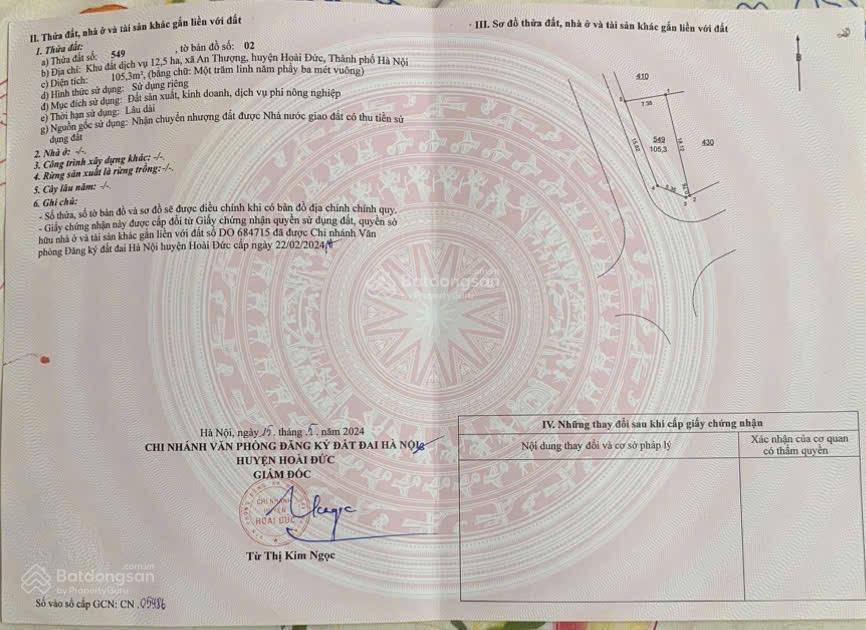 II. Thửa đất, nhà ở và tài sản khác gắn liền với đất
1. Thửa đất:
a) Thửa đất số: 549 , tờ bản đồ số: 02
b) Địa chỉ: Khu đất dịch vụ 12,5 ha, xã An Thượng, huyện Hoài Đức, Thành phố Hà Nội
c) Diện tích: 105,3m², (bằng chữ: Một trăm linh năm phẩy ba mét vuông)
d) Hình thức sử dụng: Sử dụng riêng
đ) Mục đích sử dụng: Đất sản xuất, kinh doanh, dịch vụ phi nông nghiệp
e) Thời hạn sử dụng: Lâu dài
g) Nguồn gốc sử dụng: Nhận chuyển nhượng đất được Nhà nước giao đất có thu tiền sử
dụng đất
2. Nhà ở: -/-.
3. Công trình xây dựng khác: -/-.
4. Rừng sản xuất là rừng trồng: -/-.
5. Cây lâu năm: -/-.
6. Ghi chú:
- Số thửa, số tờ bản đồ và sơ đồ sẽ được điều chỉnh khi có bản đồ địa chính chính quy.
- Giấy chứng nhận này được cấp đổi từ Giấy chứng nhận quyền sử dụng đất, quyền sở
hữu nhà ở và tài sản khác gắn liền với đất số DO 684715 đã được Chi nhánh Văn
phòng Đăng ký đất đai Hà Nội huyện Hoài Đức cấp ngày 22/02/2024
Hà Nội, ngày 15 tháng 5 năm 2024
CHI NHÁNH VĂN PHÒNG ĐĂNG KÝ ĐẤT ĐAI HÀ NỘI
HUYỆN HOÀI ĐỨC
GIÁM ĐỐC
CHI NHÁNH
HUYỆN
HOÀI ĐỨC
Từ Thị Kim Ngọc
Số vào sổ cấp GCN: CN 05486
III. Sơ đồ thửa đất, nhà ở và tài sản khác gắn liền với đất
B
410
1
7.38
549
105,3
430
19.12
4
3
2
IV. Những thay đổi sau khi cấp giấy chứng nhận
Nội dung thay đổi và cơ sở pháp lý
Xác nhận của cơ quan
có thẩm quyền
Batdongsan
.com.vn
by PropertyGuru
Batdongsan
.com.vn
by PropertyGuru